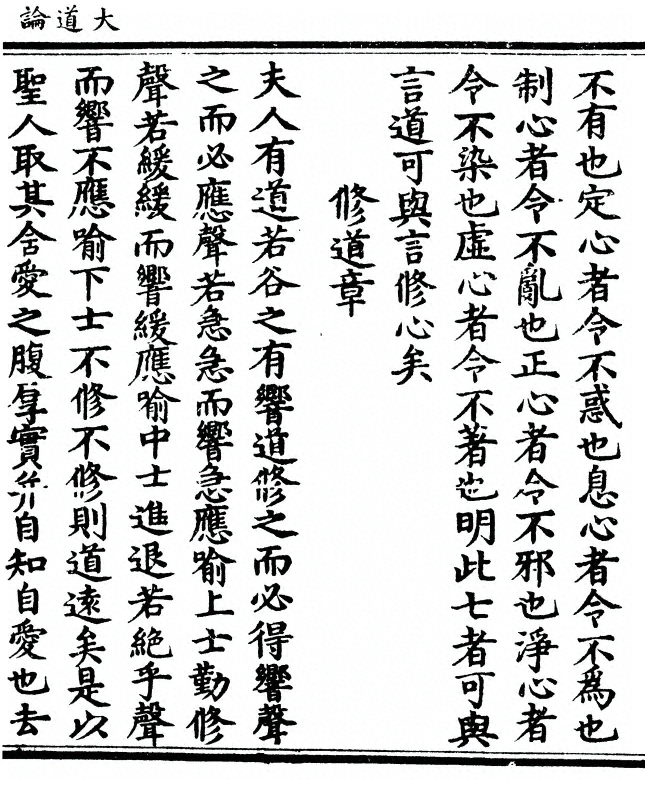 大道論
不有也定心者令不惑也息心者令不爲也
制心者令不亂也正心者令不邪也淨心者
令不染也虛心者令不著也明此七者可與
言道可與言修心矣
修道章
夫人有道若谷之有響道修之而必得響聲
之而必應聲若急急而響急應喻上士勤修
聲若緩緩而響緩應喻中士進退若絶乎聲
而響不應喻下士不修不修則道遠矣是以
聖人取其舍愛之腹厚實并自知自愛也去